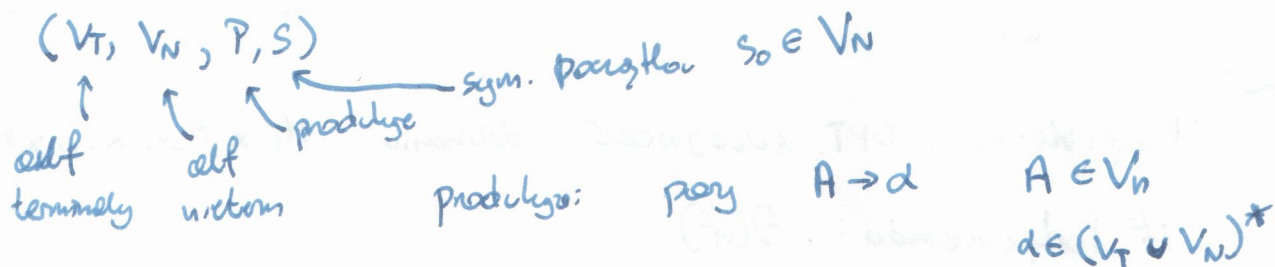 (V_T, V_N, P, S)
sym. początkow s₀ ∈ V_N
produkcje
alf alf
terminaly nieterm
produkcje: pary A → α A ∈ V_N
α ∈ (V_T ∪ V_N)*